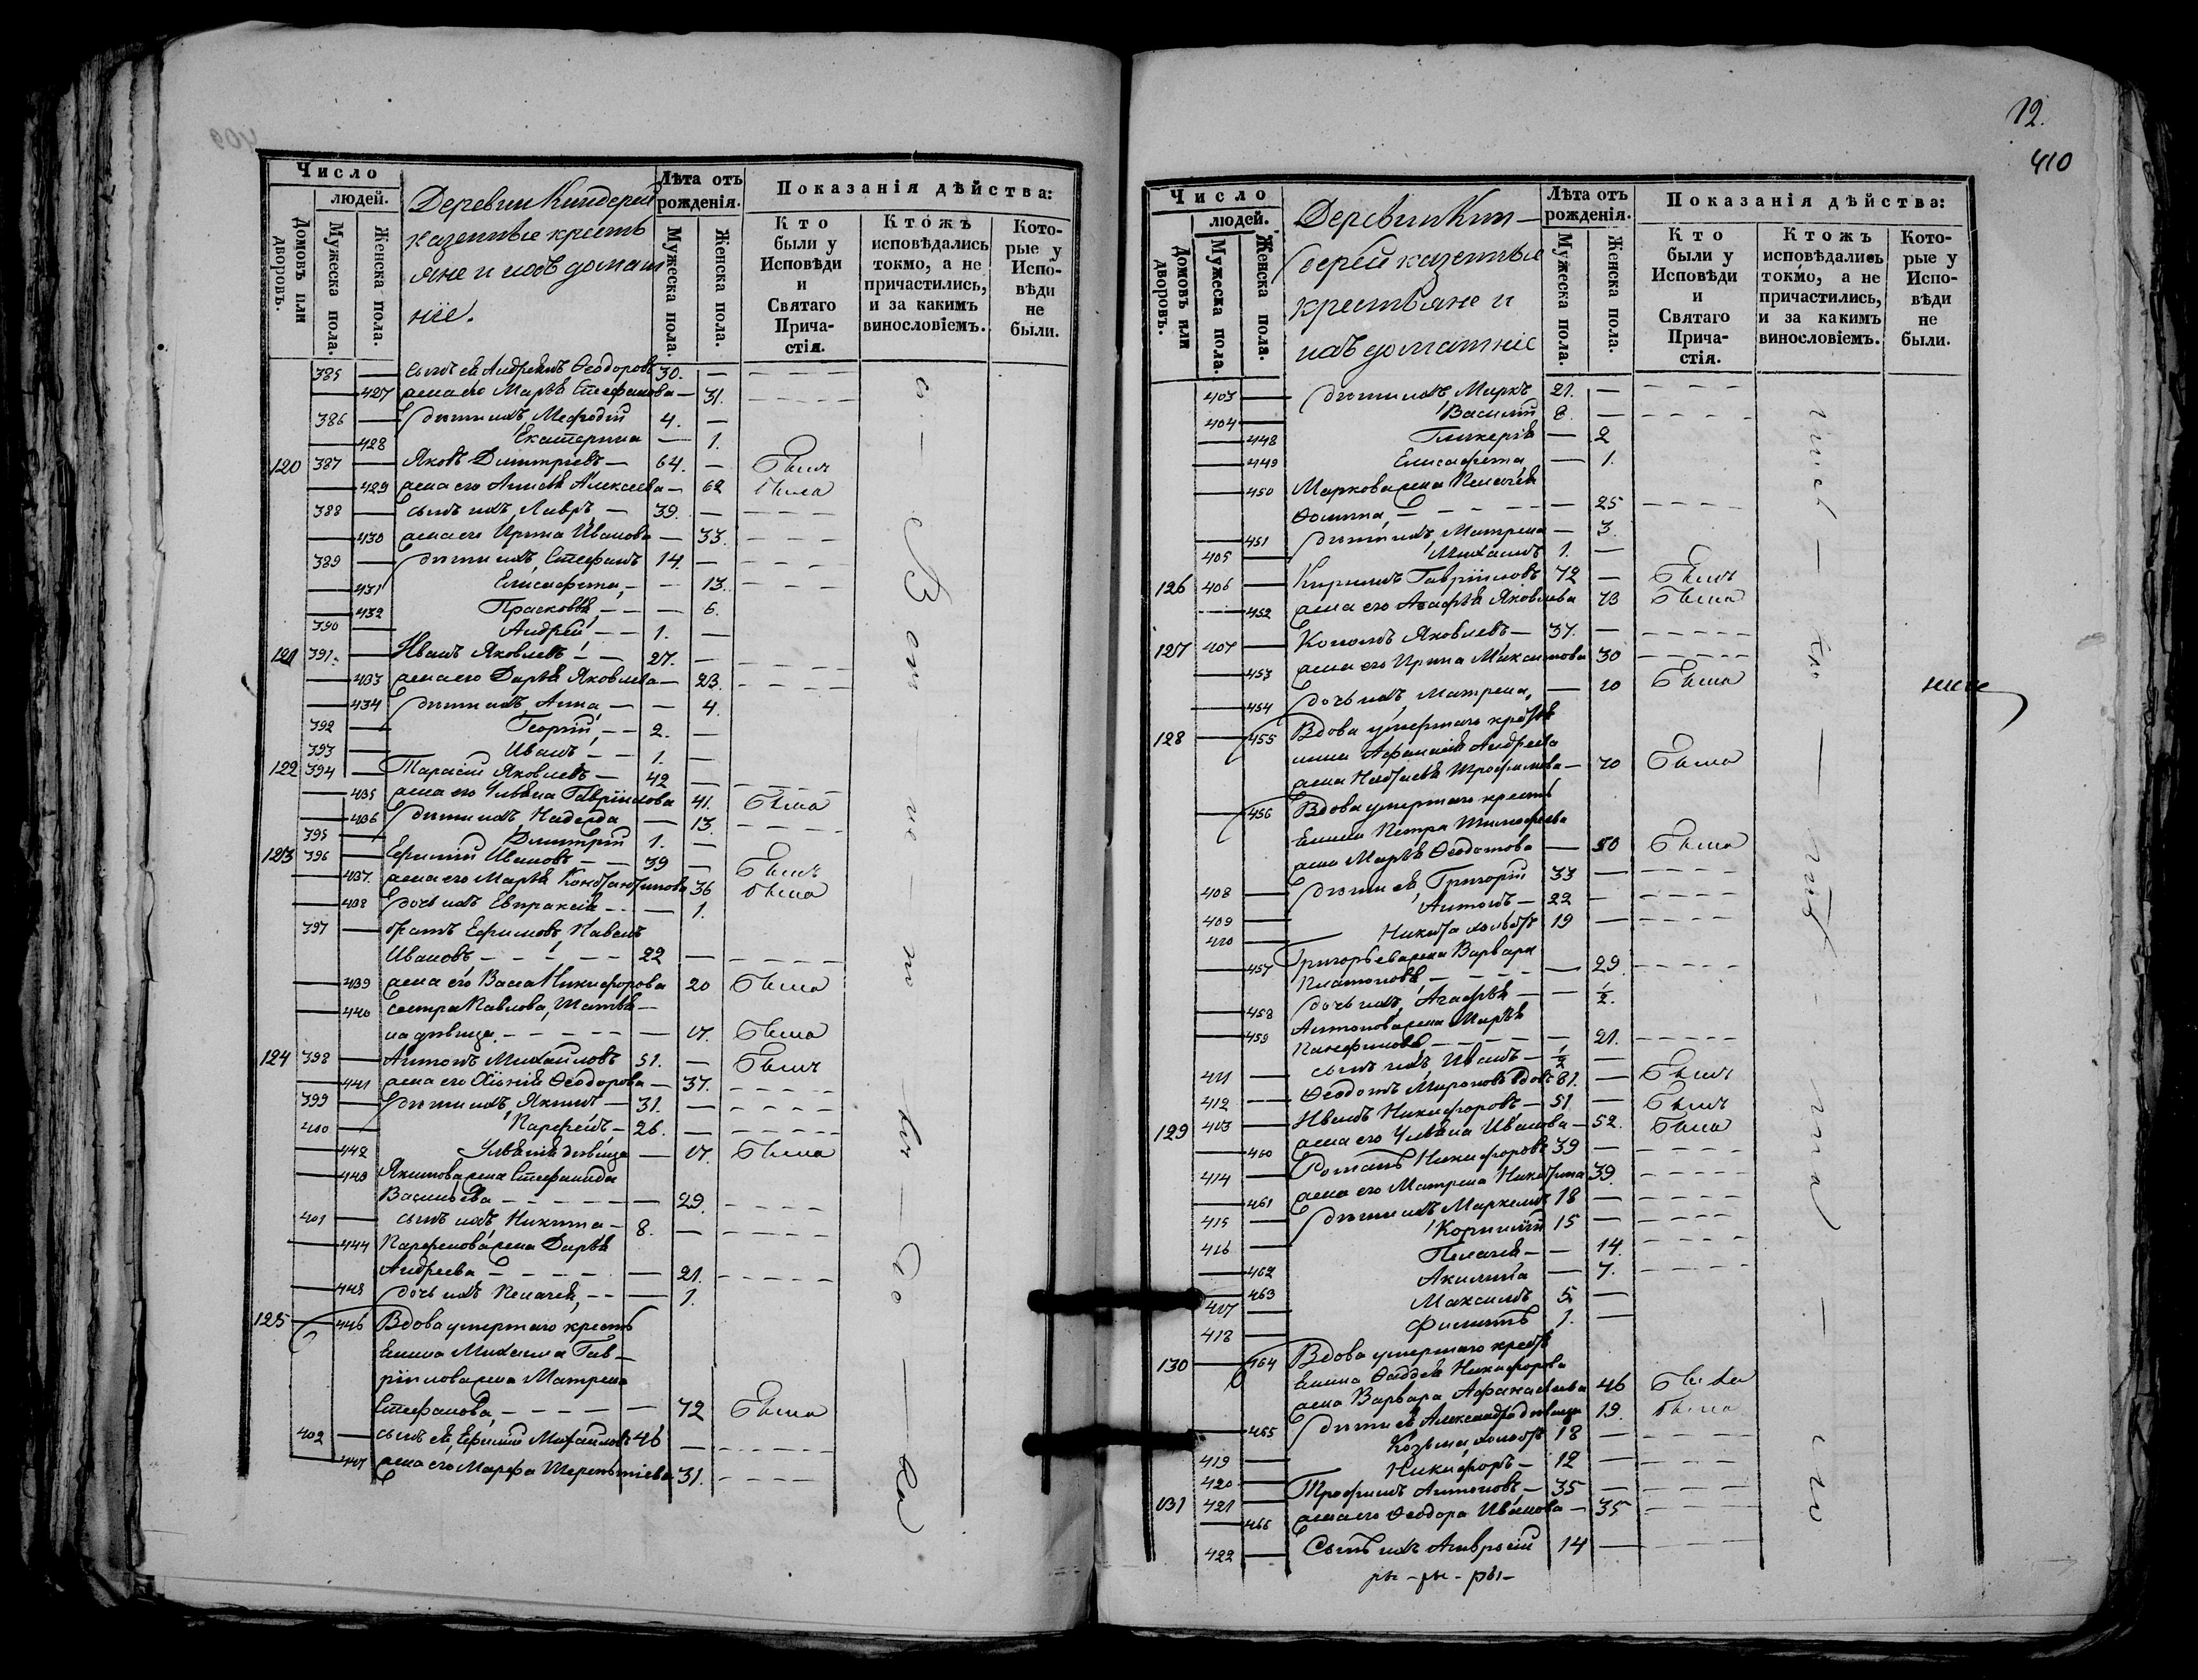 Число
людей.
Домовъ или дворовъ.
Мужеска пола.
Женска пола.
Деревни Киндерей
казенные кресть
яне и ихъ домаш
ніе.
Лѣта отъ рожденія.
Мужеска пола.
Женска пола.
Показанія дѣйства:
Кто были у Исповѣди и Святаго Прича-стія.
Ктожъ исповѣдались токмо, а не причастились, и за какимъ винословіемъ.
Кото-рые у Испо-вѣди не были.
385 — сынъ ея Андреянъ Ѳеодоровъ 30. —
— 427 жена его Марѳа Стефанова — 31.
386 — дѣти ихъ, Меѳодій 4. —
— 428 Екатерина — 1.
120 387 — Яковъ Димитріевъ — 64. — былъ
— 429 жена его Анисія Алексеева — 62 была
388 — сынъ ихъ, Лавръ — 39. —
— 430 жена его Ирина Иванова — 33.
389 — дѣти ихъ, Стефанъ 14 —
— 431 Елисафета, — 13.
— 432 Прасковья — 6.
390 — Андрей — 1. —
121 391. — Иванъ Яковлевъ — 27. —
— 433 жена его Дарья Яковлева — 23.
— 434 дѣти ихъ, Анна, — 4.
392 — Георгій, — 2. —
393 — Иванъ — 1. —
122 394 — Тарасій Яковлевъ — 42 —
— 435 жена его Ульяна Гавріилова 41. была
— 436 дѣти ихъ, Надежда — 13.
395 — Димитрій 1. —
123 396 — Ефимій Ивановъ — 39 — былъ
— 437. жена его Марья Константинова 36 была
— 438 дочь ихъ Евпраксія — 1.
397 — братъ Ефимовъ, Павелъ
Ивановъ — 22 —
— 439 жена его Васса Никифорова 20 была
— 440 сестра Павлова, Татья—
на дѣвица. — 17. была
124 398 — Антонъ Михайловъ 51. — былъ
— 441 жена его Хіонія Ѳеодорова — 37.
399 — дѣти ихъ, Якимъ — 31. —
400 — Парфенъ — 26. —
— 442 Ульянія дѣвица — 17. была
— 443 Якимова жена Стефанида
Васильева — 29.
401 — сынъ ихъ, Никита — 8. —
— 444 Парфенова жена Дарья
Андреева — 21.
— 445 дочь ихъ Пелагея, — 1.
125 — 446 Вдова умершаго кресть
янина Михаила Гав—
рійлова жена Матрена
Стефанова, — 72 была
402 — сынъ ея, Ефимій Михайловъ 46 —
— 447 жена его Марфа Терентьева 31.
12.
410
Число
людей.
Домовъ или дворовъ.
Мужеска пола.
Женска пола.
Деревни Кин—
дерей казенные
крестьяне и
ихъ домашніе
Лѣта отъ рожденія.
Мужеска пола.
Женска пола.
Показанія дѣйства:
Кто были у Исповѣди и Святаго Прича-стія.
Ктожъ исповѣдались токмо, а не причастились, и за какимъ винословіемъ.
Кото-рые у Испо-вѣди не были.
403 — дѣти ихъ, Маркъ 21. —
404 — Василій 8. —
— 448 Гликерія — 2
— 449 Елисафета — 1.
— 450 Маркова жена Пелагея
Ѳомина, — 25
— 451 дѣти ихъ, Матрена — 3.
405 — Михаилъ 1. —
126 406 — Кирилъ Гавріиловъ 72 — былъ
— 452 жена его Агафья Яковлева 73 была
127 407 — Кононъ Яковлевъ — 37. —
— 453 жена его Ирина Максимова 30
— 454 дочь ихъ, Матрена, — 10 была
128 — 455 Вдова умершаго крестья
нина Афанасія Андреева
жена Настасья Трофимова — 70 была
— 456 Вдова умершаго кресть
янина Петра Тимофеева
жена Марья Ѳеодотова — 50 была
408 — дѣти ея, Григорій 33 —
409 — Антонъ — 22 —
410 — Никита холостъ 19 —
— 457 Григорьева жена Варвара
Платонова, — 29.
— 458 дочь ихъ, Агафья — ½.
— 459 Антонова жена Марья
Панфилова — 21.
411 — сынъ ихъ, Иванъ — ½ —
412 — Ѳеодотъ Мироновъ вдовъ 81. — былъ
129 413 — Иванъ Никифоровъ — 51 — былъ
— 460 жена его Ульяна Иванова — 52. была
414 — Романъ Никифоровъ 39 —
— 461 жена его Матрена Никитина 39.
415 — дѣти ихъ Маркелъ 18 —
416 — Корнилій 15 —
— 462 Пелагея — 14.
— 463 Акилина — 7.
417 — Максимъ 5 —
418 — Филипъ 1. —
130 — 464 Вдова умершаго кресть
янина Фаддея Никифорова
жена Варвара Афанасьева 46 была
— 465 дѣти ея Александра дѣвица 19. была
419 — Козьма, холостъ 18 —
420 — Никифоръ — 12 —
131 421 — Трофимъ Антоновъ, — 35 —
— 466 жена его Ѳеодора Иванова — 35
422 — Сынъ ихъ Амвросій 14 —